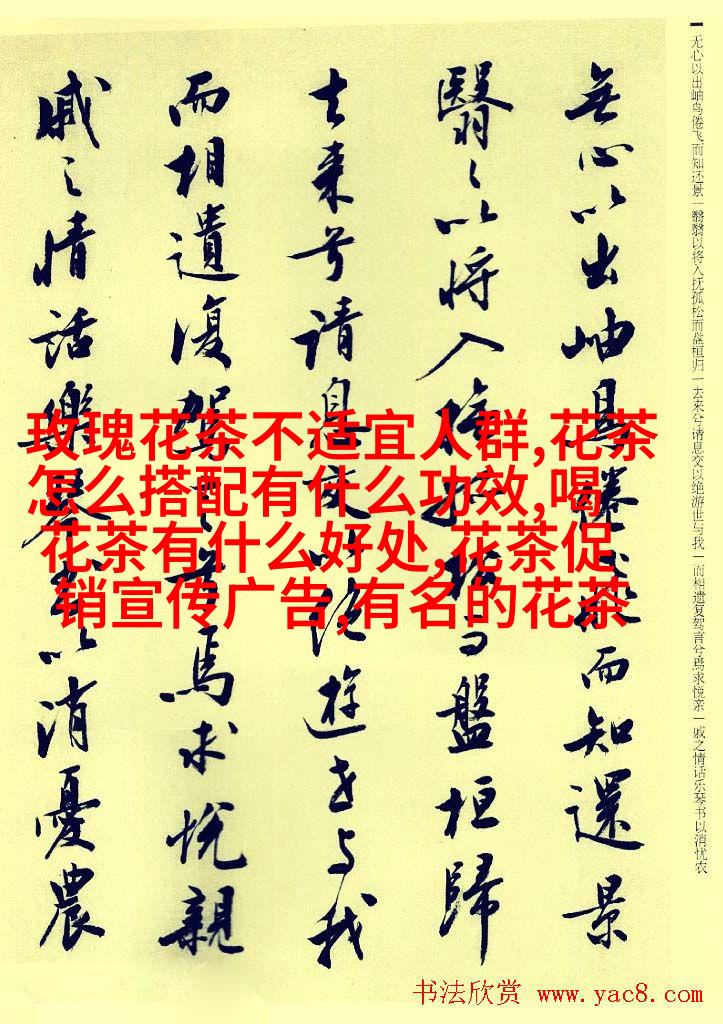 无心以出岫鸟倦飞而知还景一翳翳以将入抚孤松而盘桓归一去来兮请息交以绝游世与我一而相遗复驾言兮焉求悦亲一戚之情话乐琴书以消忧农
無心以出岫鳥倦飛而知還景
翳々以將入撫孤松而盤桓歸
去来兮请息交以絶遊世与我
而相遺復駕言兮焉求悦親
戚之情話樂琴書以消憂農
玫瑰花茶不适宜人群,花茶
怎么搭配有什么功效,喝
花茶有什么好处,花茶促
销宣传广告,有名的花茶
书法欣赏 www.yac8.com